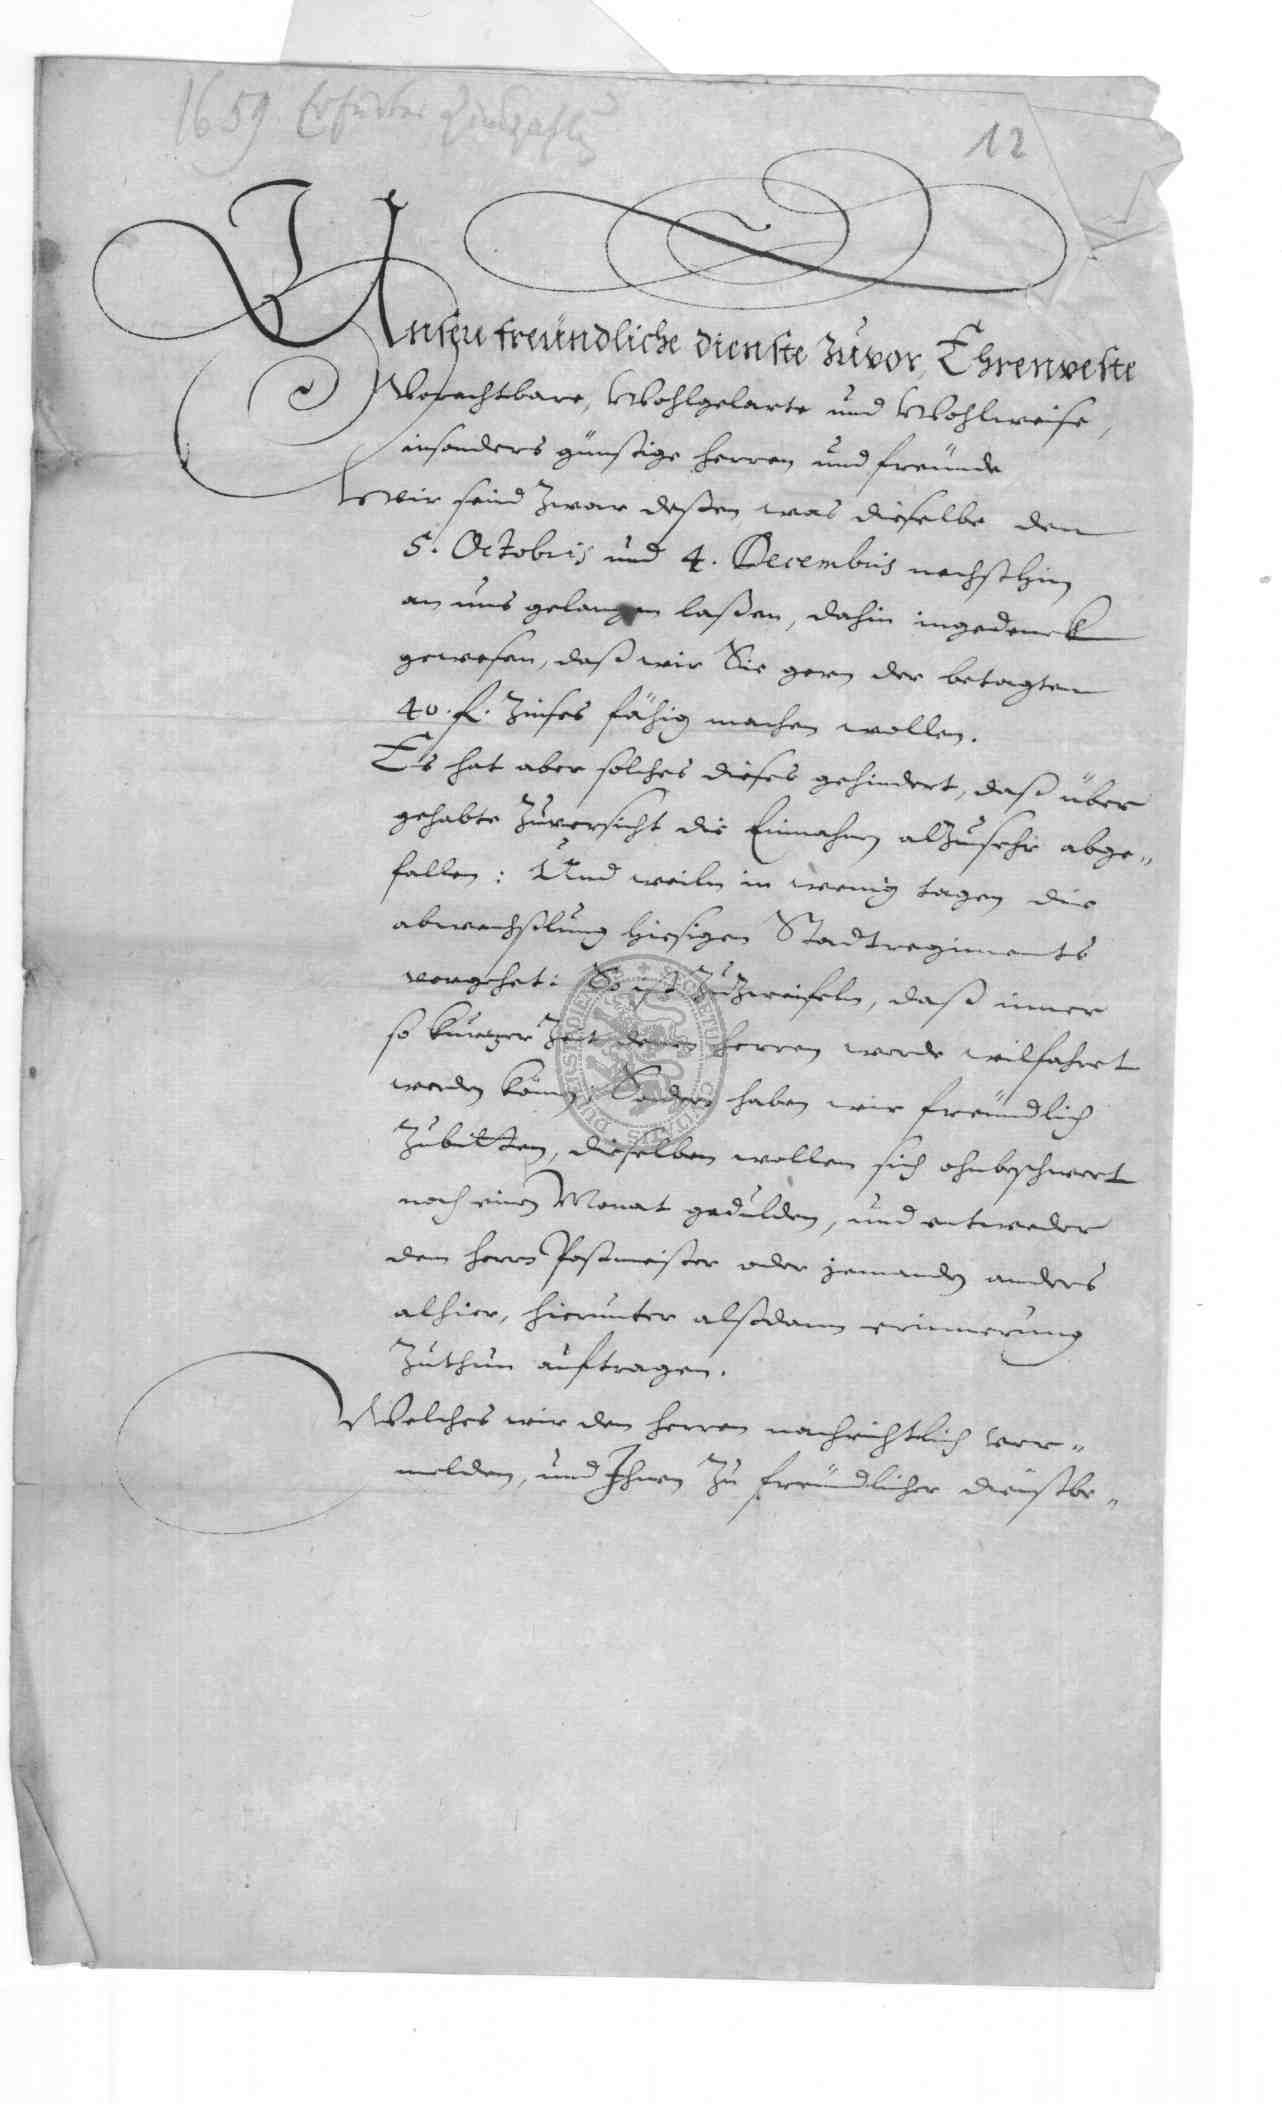 1659 Erfurter Zinszahlung
12
Unsere freündliche dienste zuvor, Ehrenveste
Vorachtbare, Wohlgelarte und Wohlweise,
insonders günstige herren und freünde
Wir seind zwar deßen, was dieselbe den
5. Octobris und 4. Decembris nechsthin
an uns gelangen laßen, dahin ingedenck
gewesen, daß wir Sie gern der betagten
40. fl. Zinses fähig machen wollen.
Es hat aber solches dieses gehindert, daß über
gehabte Zuversicht die Einnahmen alzusehr abge„
fallen: Und weiln in wenig tagen die
abwechslung hiesigen Stadtregiments
vorgehet: So ist zuzweifeln, daß inner
so kurtzer Zeit denen herren werde wilfahrt
werden können; Sondern haben wir freündlich
zubitten, dieselben wollen sich ohnbeschwert
noch einen Monat gedulden, und entweder
dem herrn Postmeister oder jemanden anders
alhier, hierunter alßdann erinnerung
zuthun auftragen.
Welches wir den herren nachrichtlich ver„
melden, und Ihnen zu freündlicher dienstbe„